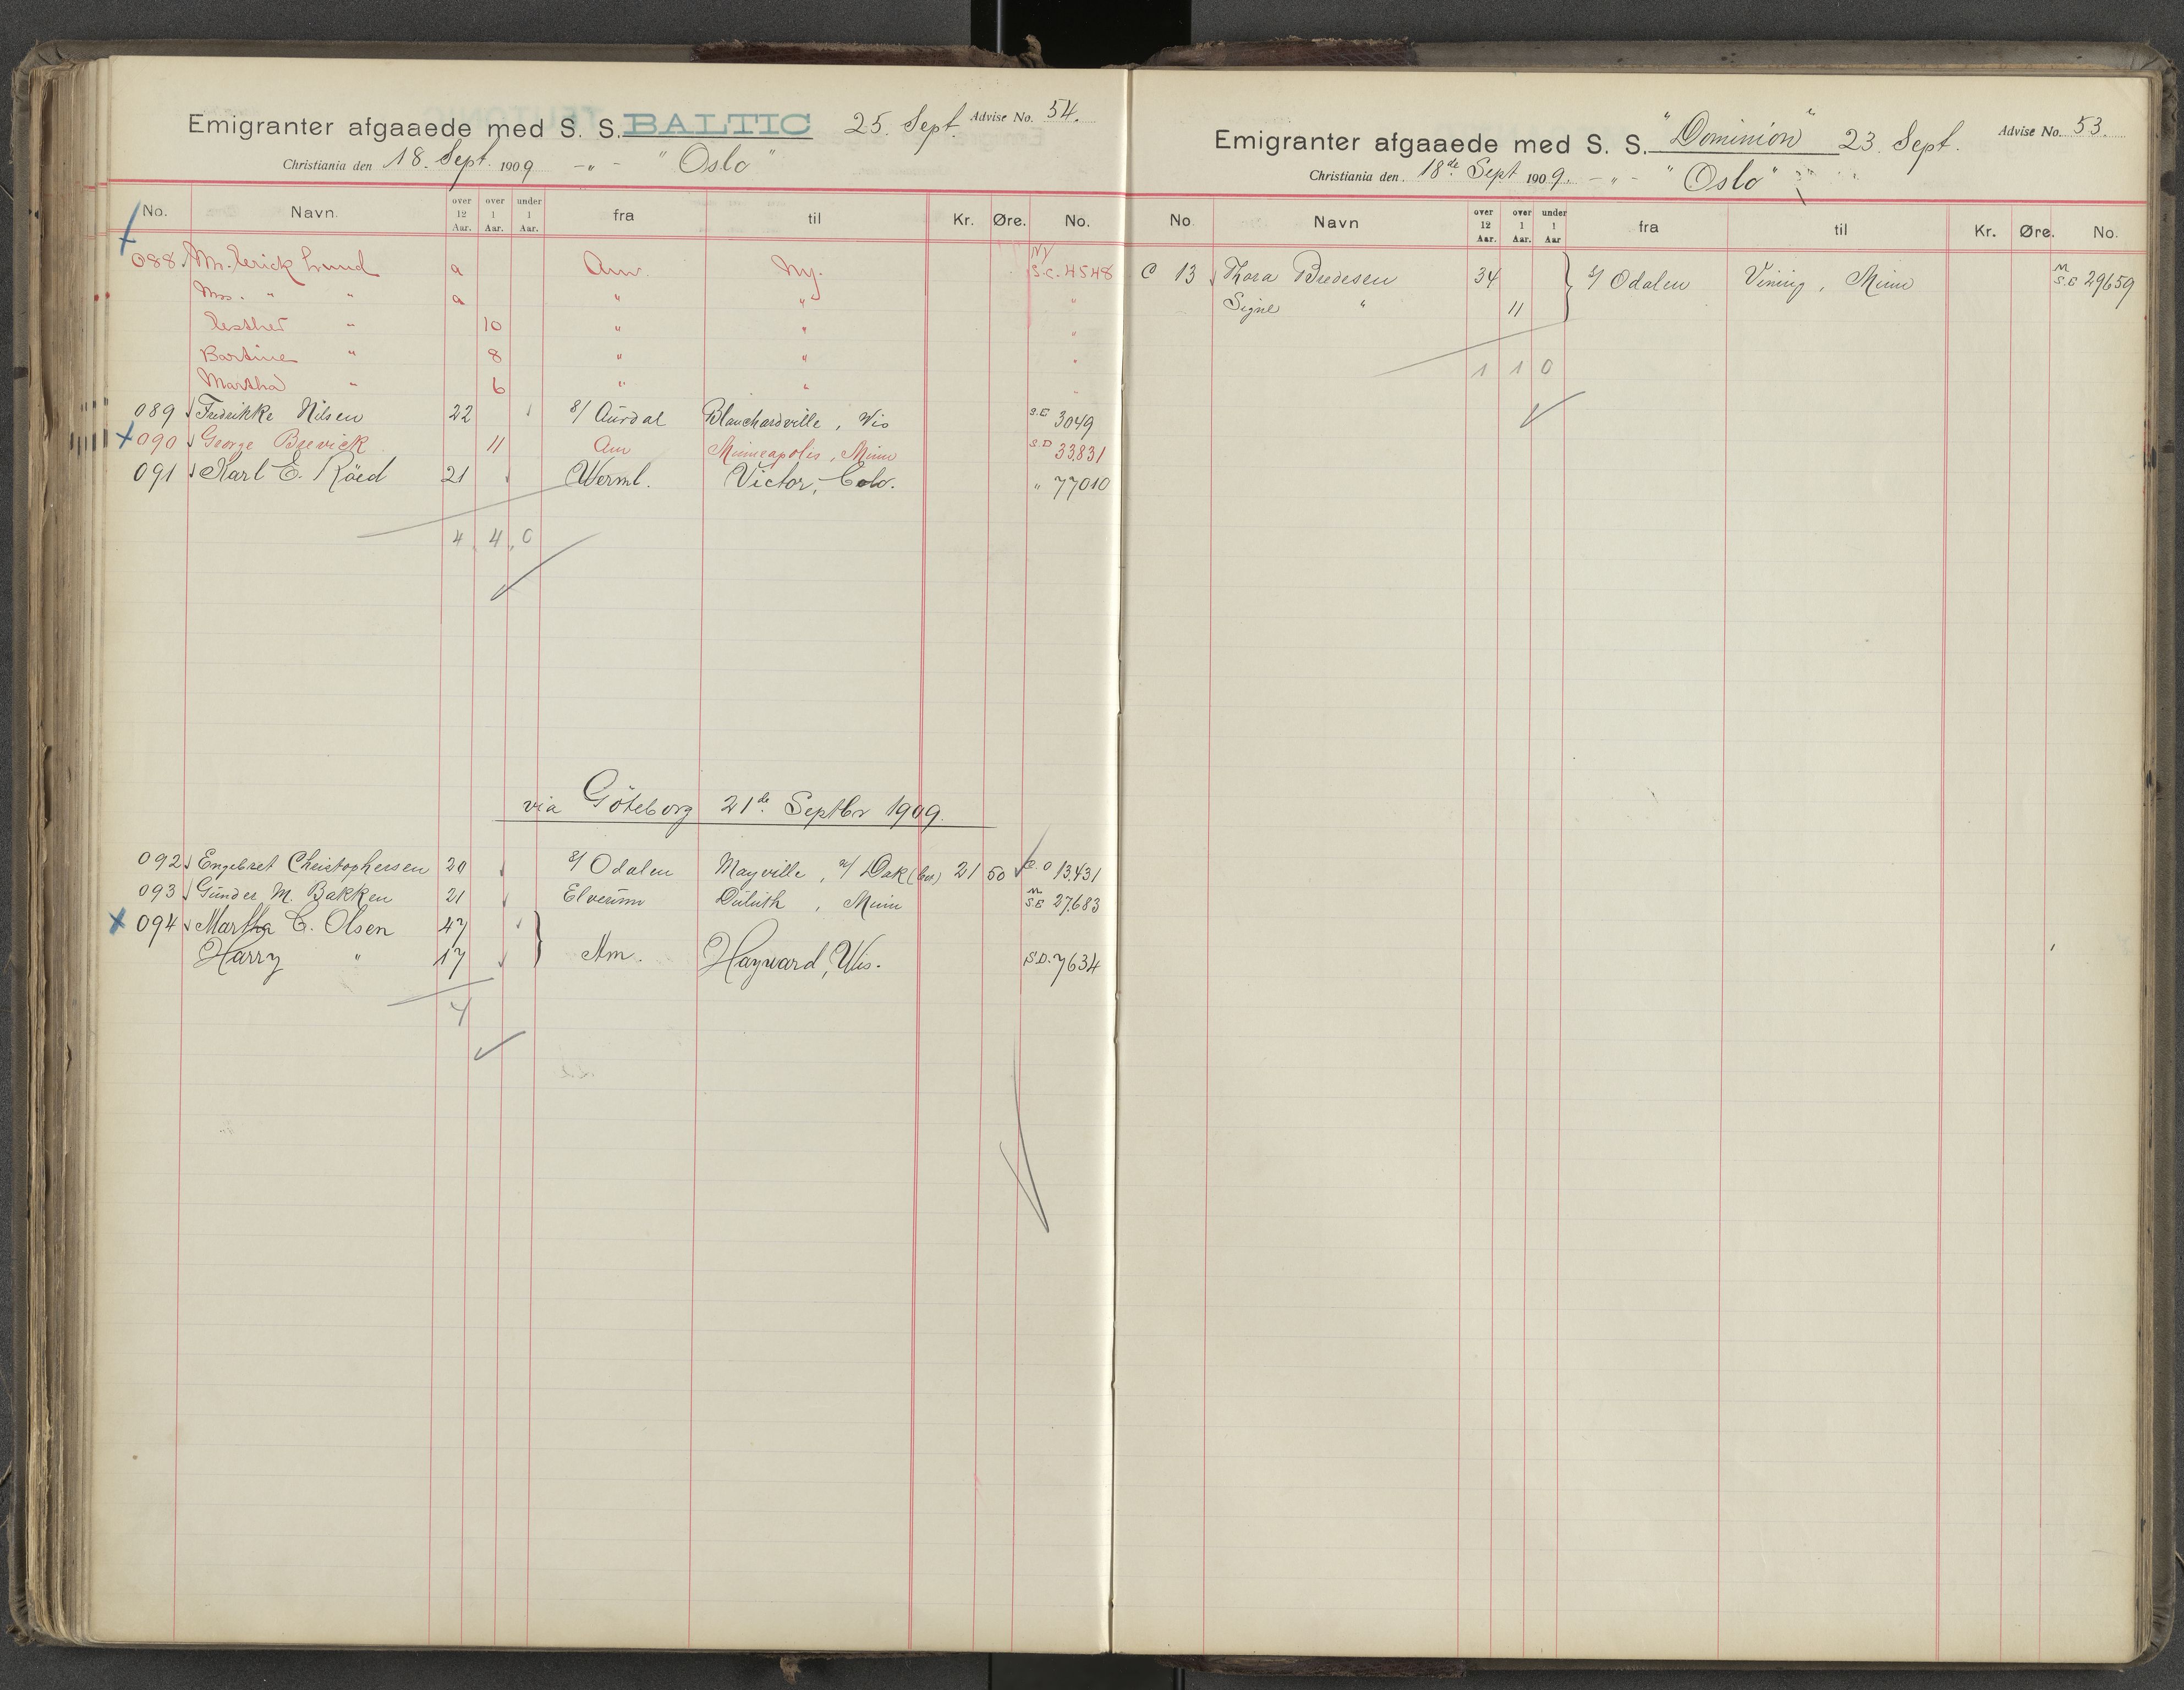 Emigranter afgaaede med S. S. BALTIC 25. Sept. Advise No. 54.
Christiania den 18. Sept. 1909 -"- "Oslo"
No. Navn. over 12 Aar. over 1 Aar. under 1 Aar. fra til Kr. Øre. No.
088. Mr. Erick Lund a Am. Ny. NY S.C. 4548
Mrs. " " a " " "
Esther " 10 " " "
Bartine " 8 " " "
Martha " 6 " " "
089 Fredrikke Nilsen 22 s/ Aurdal Blanchardville, Wis S.E 3049
090 George Brevick 11 Am Minneapolis, Minn S.D 33831
091 Karl E. Röed 21 Werml. Victor, Colo. " 77010
4 4 0
via Göteborg 21de Septbr 1909.
092 Engebret Christophersen 20 s/ Odalen Mayville, n/ Dak 21 50 13431
093 Gunder M. Bakken 21 Elverum Duluth, Minn M S.E 27683
094 Martha C. Olsen 47
Harry " 17 Am. Hayward, Wis. S.D. 7634
4
Emigranter afgaaede med S. S. "Dominion" 23. Sept. Advise No. 53.
Christiania den. 18de Sept 1909. -"- "Oslo"
No. Navn over 12 Aar. over 1 Aar. under 1 Aar fra til Kr. Øre. No.
C 13 Thora Bredesen 34 s/ Odalen Vining, Minn M S.E 29659
Signe " 11
1 1 0